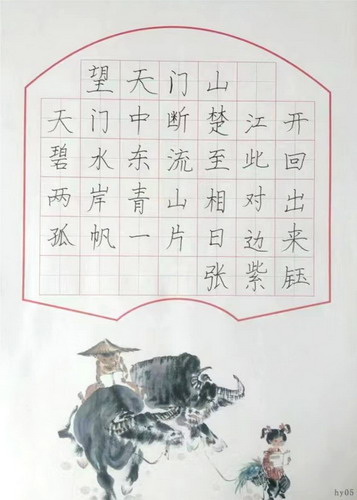 望天门山
天门中断楚江开
碧水东流至此回
两岸青山相对出
孤帆一片日边来
张紫钰
hy05